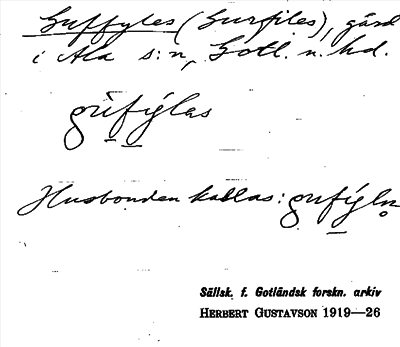 Guffyles (Gurfiles), gård
i Ala s:n, Gotl. n. hd.
gùfýlas
Husbonden kallas: gufýln
Sällsk. f. Gotländsk forskn. arkiv
HERBERT GUSTAVSON 1919—26